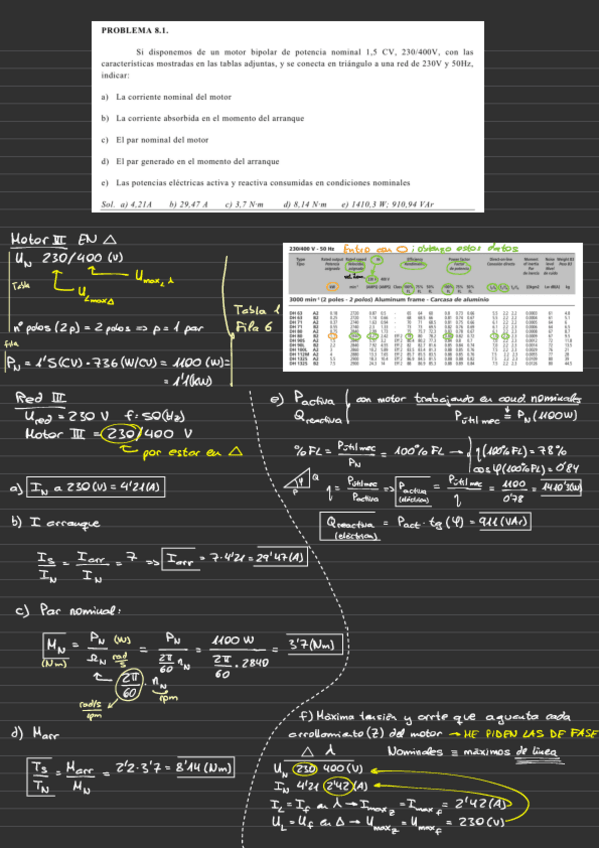 PROBLEMA 8.1.
Si disponemos de un motor bipolar de potencia nominal 1,5 CV, 230/400V, con las
características mostradas en las tablas adjuntas, y se conecta en triángulo a una red de 230V y 50Hz,
indicar:
a) La corriente nominal del motor
b) La corriente absorbida en el momento del arranque
c) El par nominal del motor
d) El par generado en el momento del arranque
e) Las potencias eléctricas activa y reactiva consumidas en condiciones nominales
Sol. a) 4,21A b) 29,47 A c) 3,7 N·m d) 8,14 N·m e) 1410,3 W; 910,94 VAr
Motor III EN Δ
U_N 230/400 (V)
Tabla
U_max Δ
U_max λ
nº polos (2p) = 2 polos => p = 1 par
P_N = 1'5(CV)·736(W/CV) = 1100 (W) =
= 1'1(kW)
Tabla 1
Fila 6
230/400 V - 50 Hz
Entro con
obtengo estos datos
3000 min⁻¹ (2 polos - 2 polos) Aluminum frame - Carcasa de aluminio
Red III
U_red = 230 V f: 50(Hz)
Motor III = 230/400 V
por estar en Δ
a) I_N a 230(V) = 4'21(A)
b) I arranque
I_s/I_N = I_arr/I_N = 7 => I_arr = 7·4'21 = 29'47(A)
c) Par nominal:
M_N (Nm) = P_N (W)/Ω_N rad/s = P_N/(2π/60 n_N) = 1100 W/(2π/60 · 2840) = 3'7(Nm)
2π/60 · n_N
rad/s/rpm
rpm
d) Marr
T_s/T_N = M_arr/M_N = 2'2·3'7 = 8'14(Nm)
e) P activa
Q reactiva
con motor trabajando en cond. nominales
P útil mec = P_N (1100W)
% FL = P útil mec/P_N = 100% FL → η(100%FL) = 78%
cos φ(100%FL) = 0'84
η = P útil mec/P activa => P activa (eléctrica) = P útil mec/η = 1100/0'78 = 1410'3(W)
Q reactiva (eléctrica) = Pact · tg(φ) = 911(VAr)
f) Máxima tensión y crrte que aguanta cada
arrollamiento (Z) del motor → ME PIDEN LAS DE FASE
Δ λ Nominales ≡ máximos de línea
U_N 230 400(V)
I_N 4'21 2'42(A)
I_L = I_f en λ → I_max_z = I_max_f = 2'42(A)
U_L = U_f en Δ → U_max_z = U_max_f = 230(V)